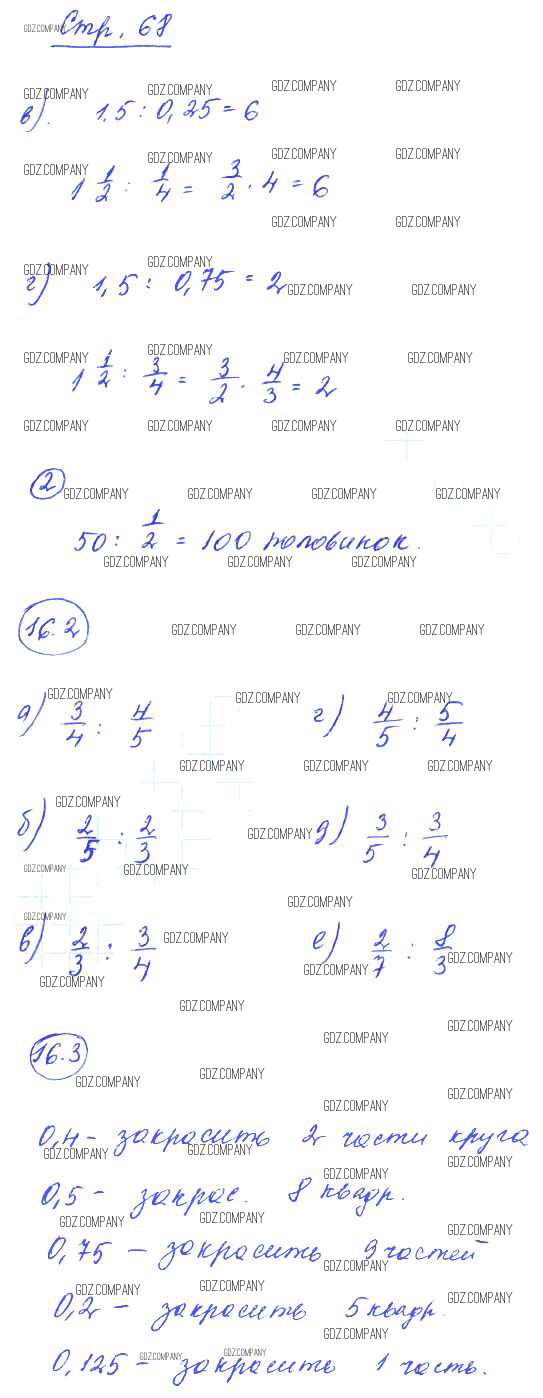 Стр. 68
в). 1.5 : 0,25 = 6
1 1/2 : 1/4 = 3/2 · 4 = 6
г) 1,5 : 0,75 = 2
1 1/2 : 3/4 = 3/2 · 4/3 = 2
2
50 : 1/2 = 100 половинок.
16.2
а) 3/4 : 4/5 г) 4/5 : 5/4
б) 2/5 : 2/3 д) 3/5 : 3/4
в) 2/3 : 3/4 е) 2/7 : 8/3
16.3
0,4 - закрасить 2 части круга
0,5 - закрас. 8 квадр.
0,75 - закрасить 9 частей
0,2 - закрасить 5 квадр.
0,125 - закрасить 1 часть.
GDZ.COMPANY